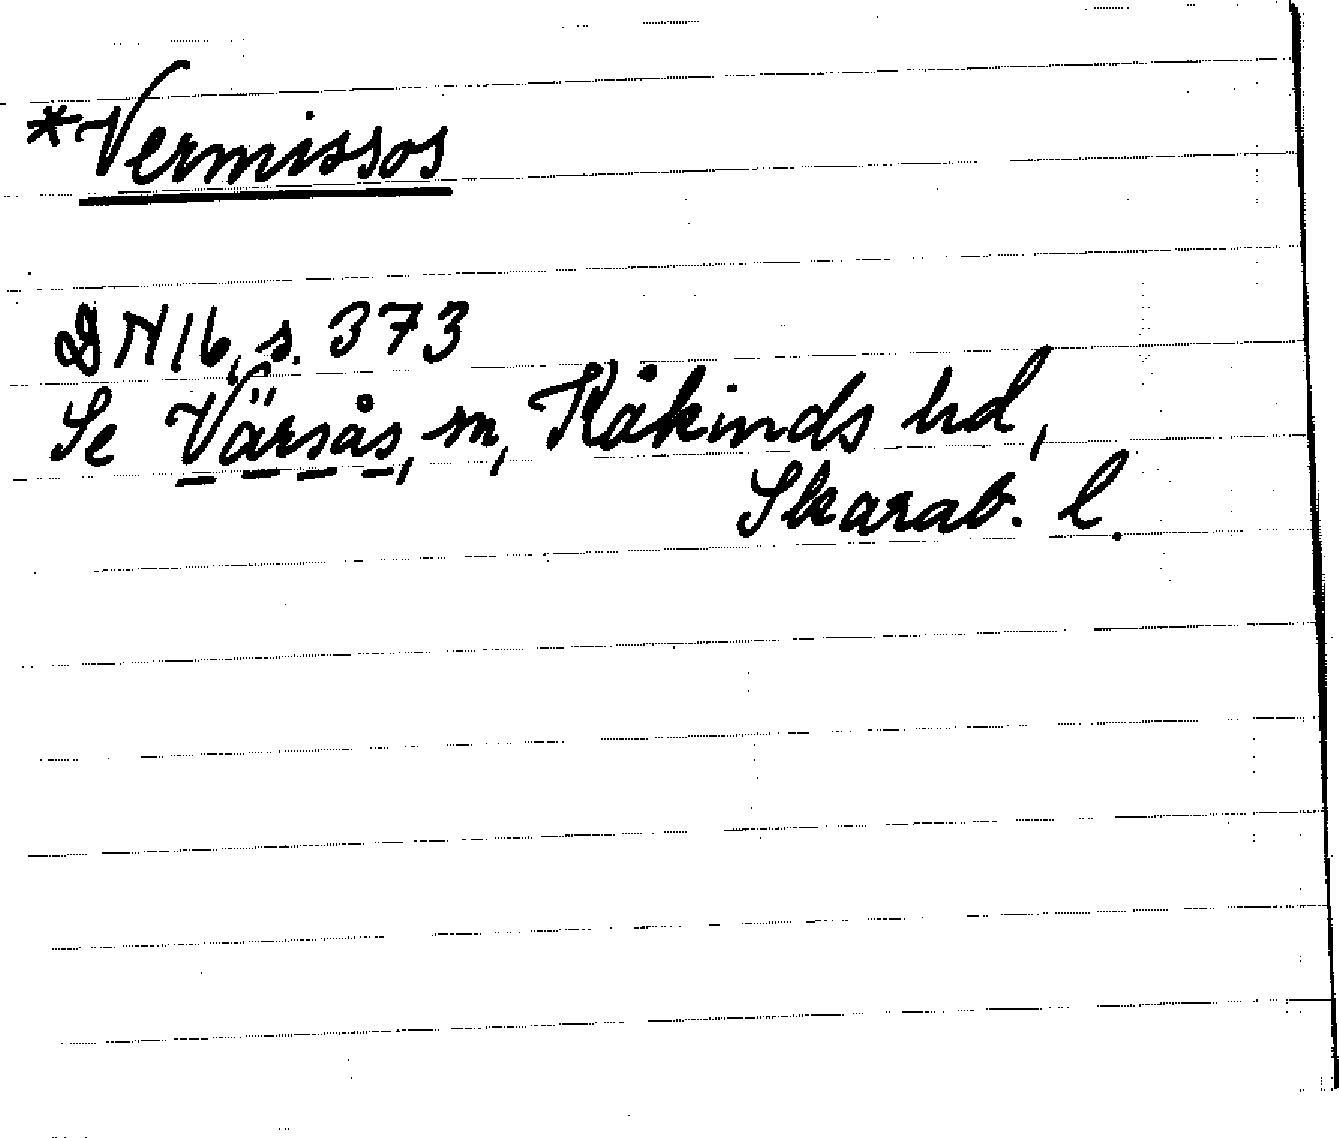 *Vermissos
DN 16, s. 373
Se Värsås, sn, Kåkinds hd,
Skarab. l.